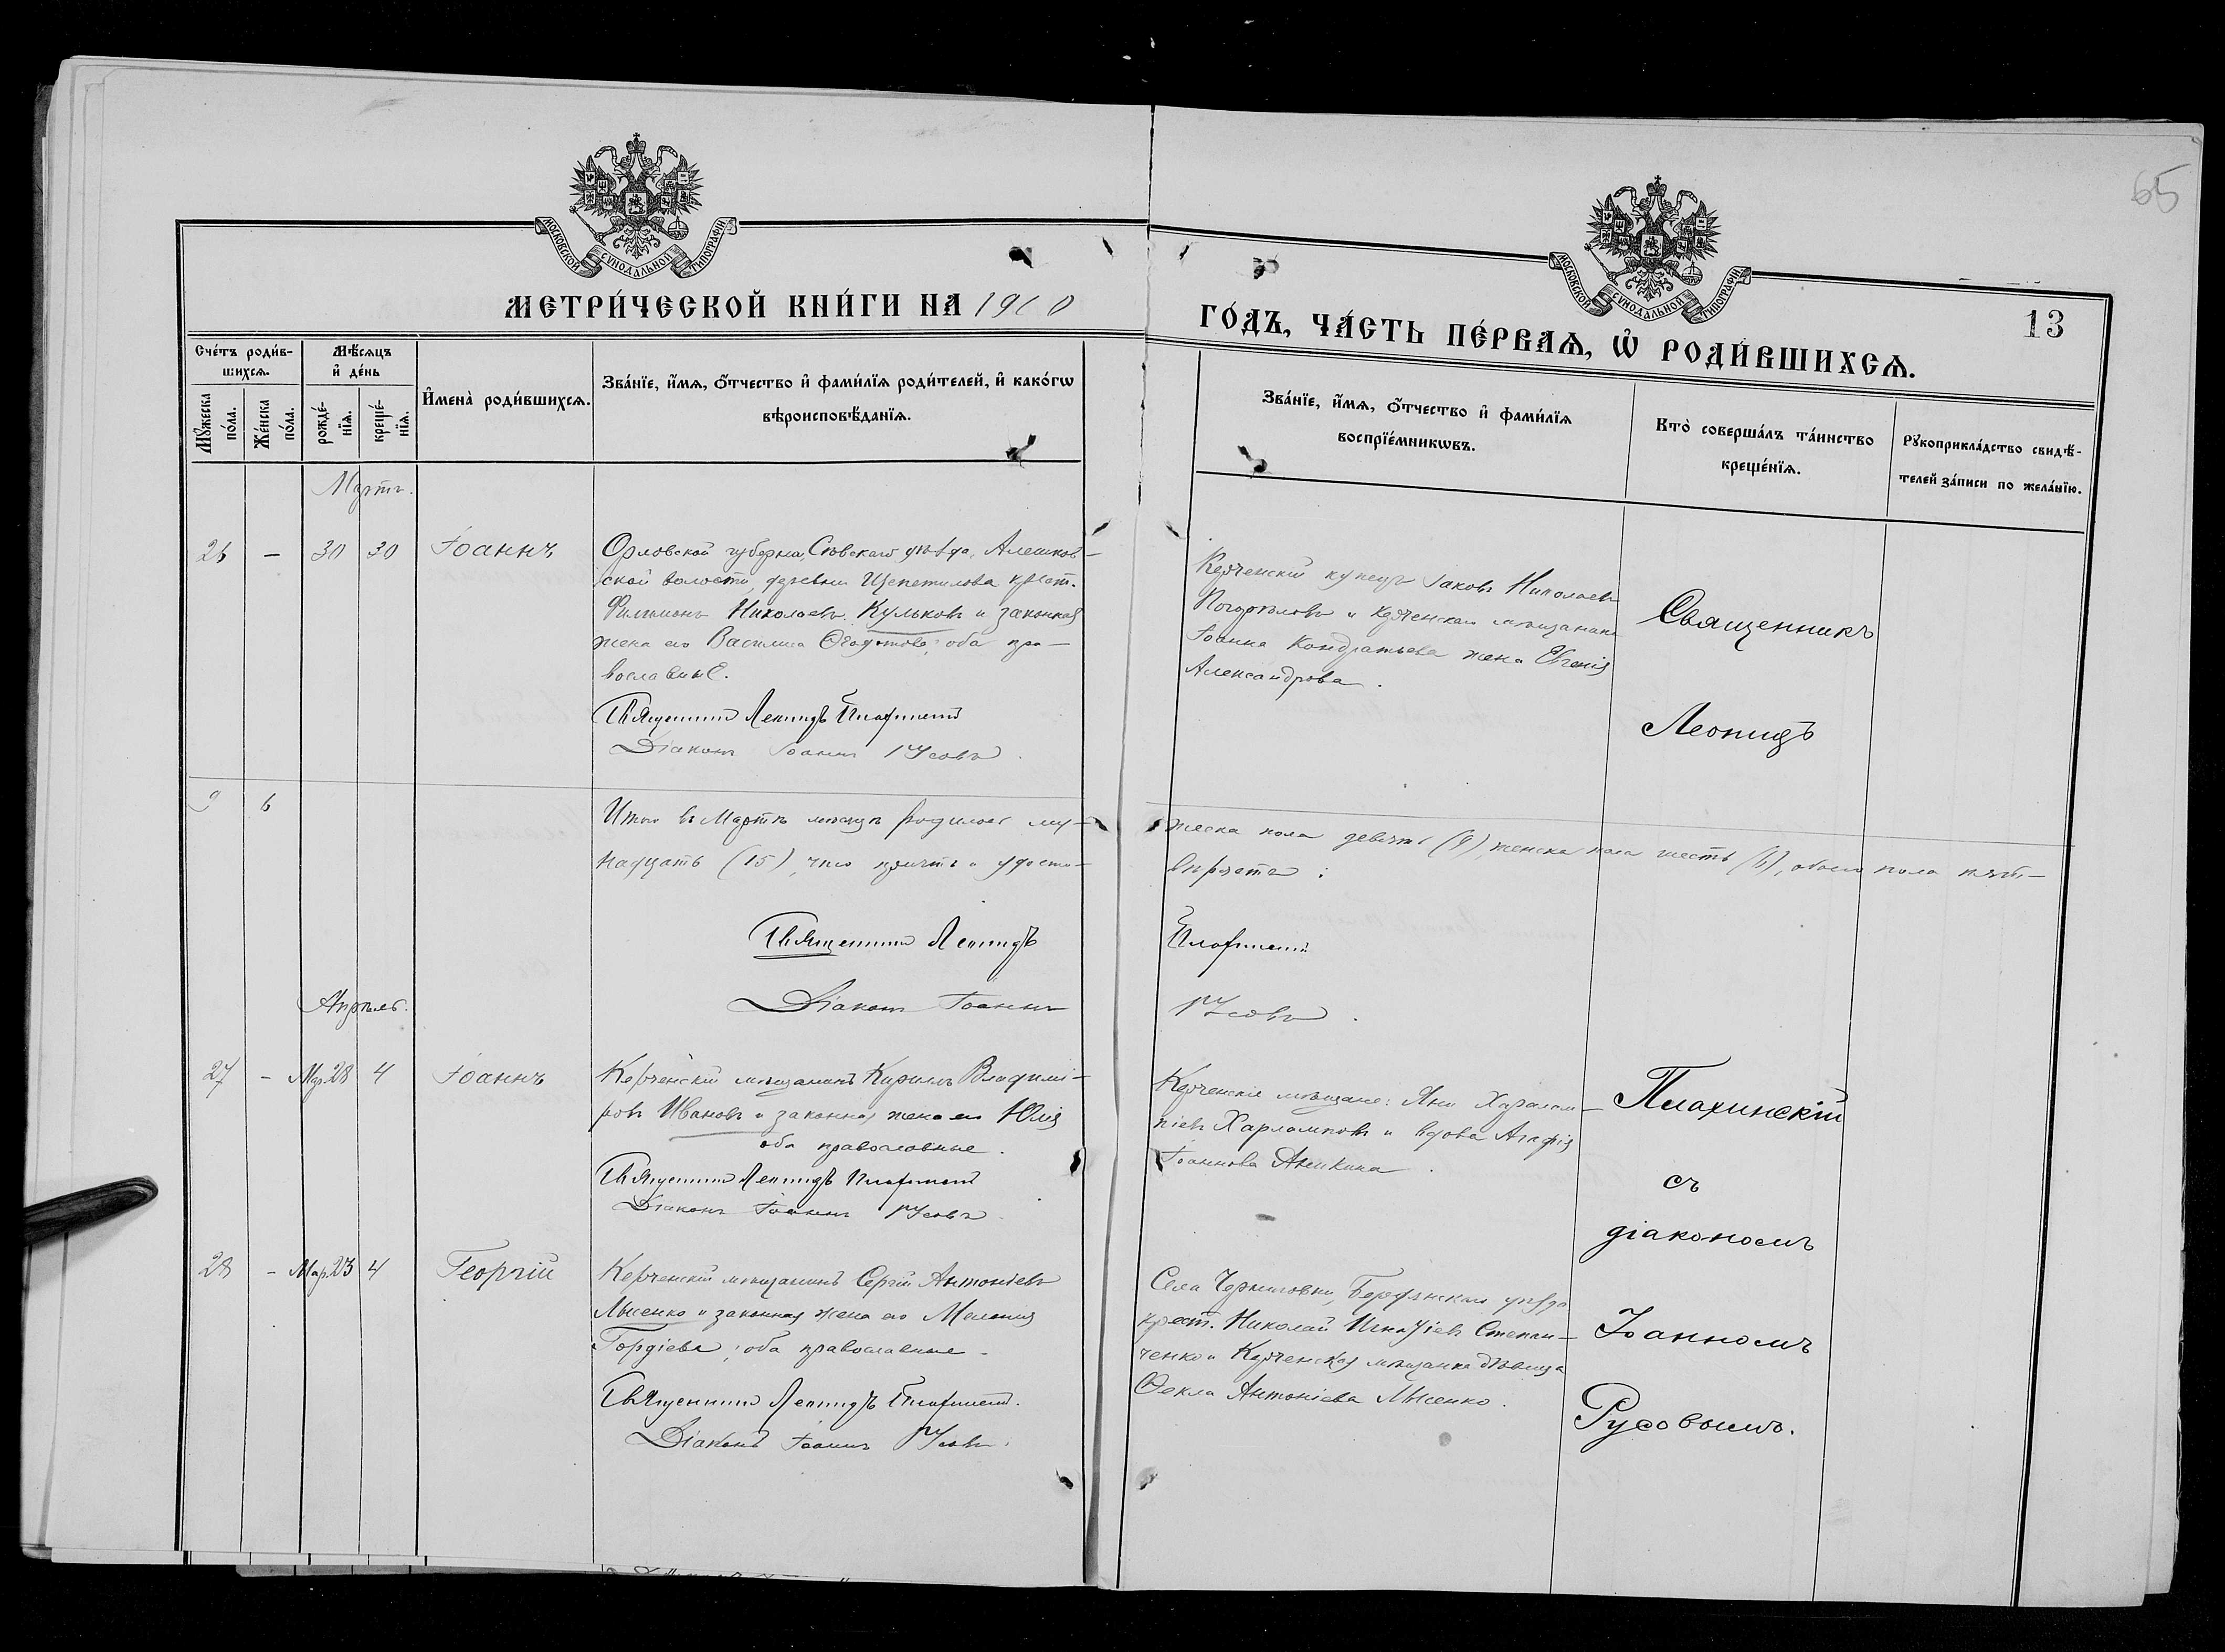 65
МОСКОВСКОЙ СѴНОДАЛЬНОЙ ТИПОГРАФІИ
МОСКОВСКОЙ СѴНОДАЛЬНОЙ ТИПОГРАФІИ
МЕТРИ́ЧЕСКОЙ КНИ́ГИ НА 1910
ГО́ДЪ, ЧА́СТЬ ПЕ́РВАѦ, Ѡ҆ РОДИ́ВШИХСѦ.
13
Сче́тъ роди́в-
шихсѧ.
Мꙋ́жеска
по́ла.
Же́нска
по́ла.
Мѣ́сѧцъ
и҆ де́нь
рожде́-
нїѧ.
креще́-
нїѧ.
И҆мена̀ роди́вшихсѧ.
Зва́нїе, и҆́мѧ, ѻ҆́тчество и҆ фами́лїѧ роди́телей, и҆ како́гѡ
вѣроисповѣ́данїѧ.
Зва́нїе, и҆́мѧ, ѻ҆́тчество и҆ фами́лїѧ
воспрїе́мникѡвъ.
Кто̀ соверша́лъ та́инство
креще́нїѧ.
Рꙋкоприкла́дство свидѣ́-
телей за́писи по жела́нїю.
Мартъ.
26 – 30 30 Іоаннъ
Орловской губерніи, Сѣвскаго уѣзда, Алешков-
ской волости, деревни Щепетилова крест.
Филимонъ Николаевъ Кульковъ и законная
жена его Василиса Ѳедотова; оба пра-
вославные.
Священникъ Леонидъ Плахинскій
Діаконъ Іоаннъ Русовъ.
Керченскій купецъ Іаковъ Николаевъ
Погорѣловъ и Керченскаго мѣщанина
Іоанна Кондратьева жена Евгенія
Александрова.
Священникъ
Леонидъ
9 6
Итого въ Мартѣ мѣсяцѣ родилось му-
жеска пола девять (9), женска пола шесть (6), обоего пола пят-
надцать (15), что причтъ и удосто-
вѣряетъ:
Священникъ Леонидъ
Плахинскій
Діаконъ Іоаннъ
Русовъ.
Апрѣль.
27 – Мар. 28 4 Іоаннъ
Керченскій мѣщанинъ Кириллъ Владимі-
ровъ Ивановъ и законная жена его Юлія
оба православные.
Священникъ Леонидъ Плахинскій
Діаконъ Іоаннъ Русовъ.
Керченскіе мѣщане: Яни Харалам-
піевъ Харламповъ и вдова Агафія
Іоаннова Аникина.
Плахинскій
съ
діакономъ
28 – Мар. 23 4 Георгій
Керченскій мѣщанинъ Сергій Антоніевъ
Лысенко и законная жена его Меланія
Гордіева; оба православные.
Священникъ Леонидъ Плахинскій.
Діаконъ Іоаннъ Русовъ.
Села Черниговки, Бердянскаго уѣзда
крест. Николай Игнатіевъ Степан-
ченко и Керченская мѣщанка дѣвица
Ѳекла Антоніева Лысенко.
Іоанномъ
Русовымъ.